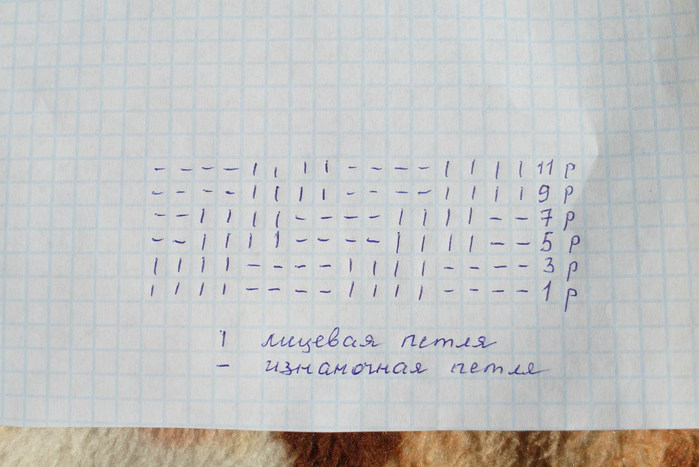 - - - - I I I I - - - - I I I I 11 р
- - - - I I I I - - - - I I I I 9 р
- - I I I I - - - - I I I I - - 7 р
- - I I I I - - - - I I I I - - 5 р
I I I I - - - - I I I I - - - - 3 р
I I I I - - - - I I I I - - - - 1 р
I лицевая петля
- изнаночная петля